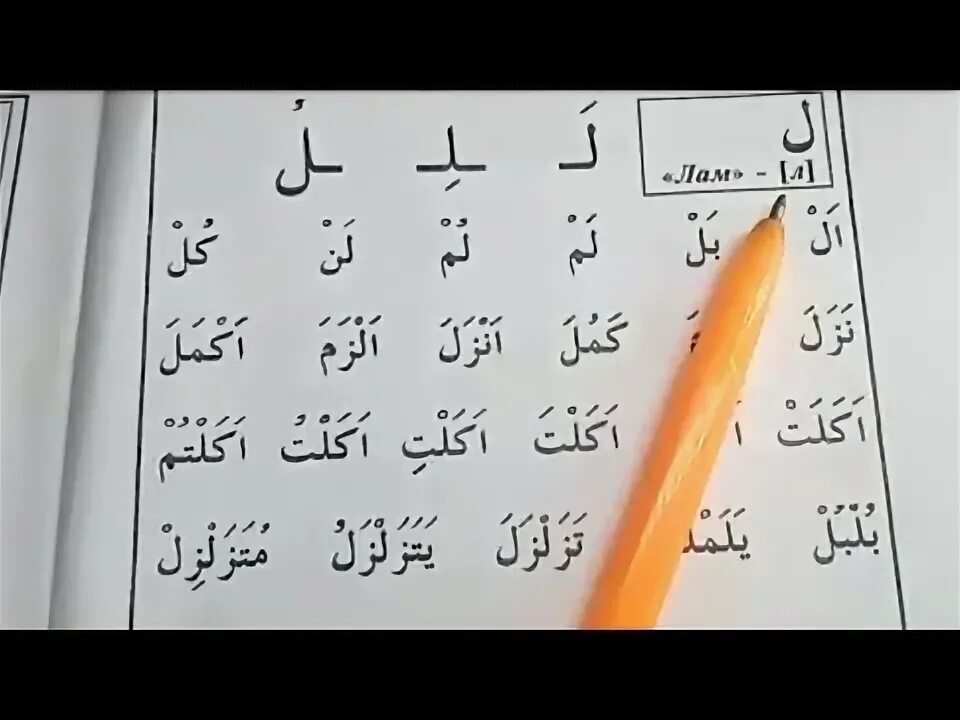 ل
«Лам» - [л]
لَـ ـلِـ ـلُ
اَلْ بَلْ لَمْ لُمْ لَنْ كُلْ
نَزَلَ كَمُلَ اَنْزَلَ اَلْزَمَ اَكْمَلَ
اَكَلَتْ اَكَلْتَ اَكَلْتِ اَكَلْتُ اَكَلْتُمْ
بُلْبُلْ تَزَلْزَلَ يَتَزَلْزَلُ مُتَزَلْزِلْ